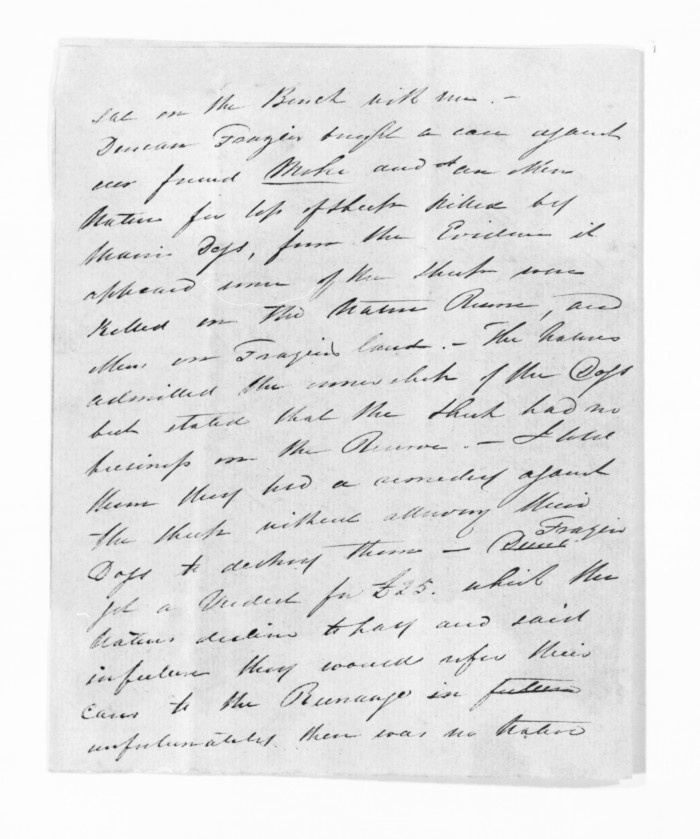 sat on the Bench with me. –
Duncan Frazier bought a case against
our friend Mohi and an other
Native for loss of Sheep killed by
thair Dogs, from the Evidence it
appeared some of the Sheep were
Killed on the Native Reserve, and
others on Fraziers land. – The Natives
admitted the ownership of the Dogs
but stated that the Sheep had no
business on the Reserve. – I told
them they had a remedy against
the Sheep without allowing their
Dogs to destroy them – Frazier
got a Verdict for £25. which the
Natives decline to pay and said
in future they would refer their
cases to the Runanga in future
unfortunately there was no Native